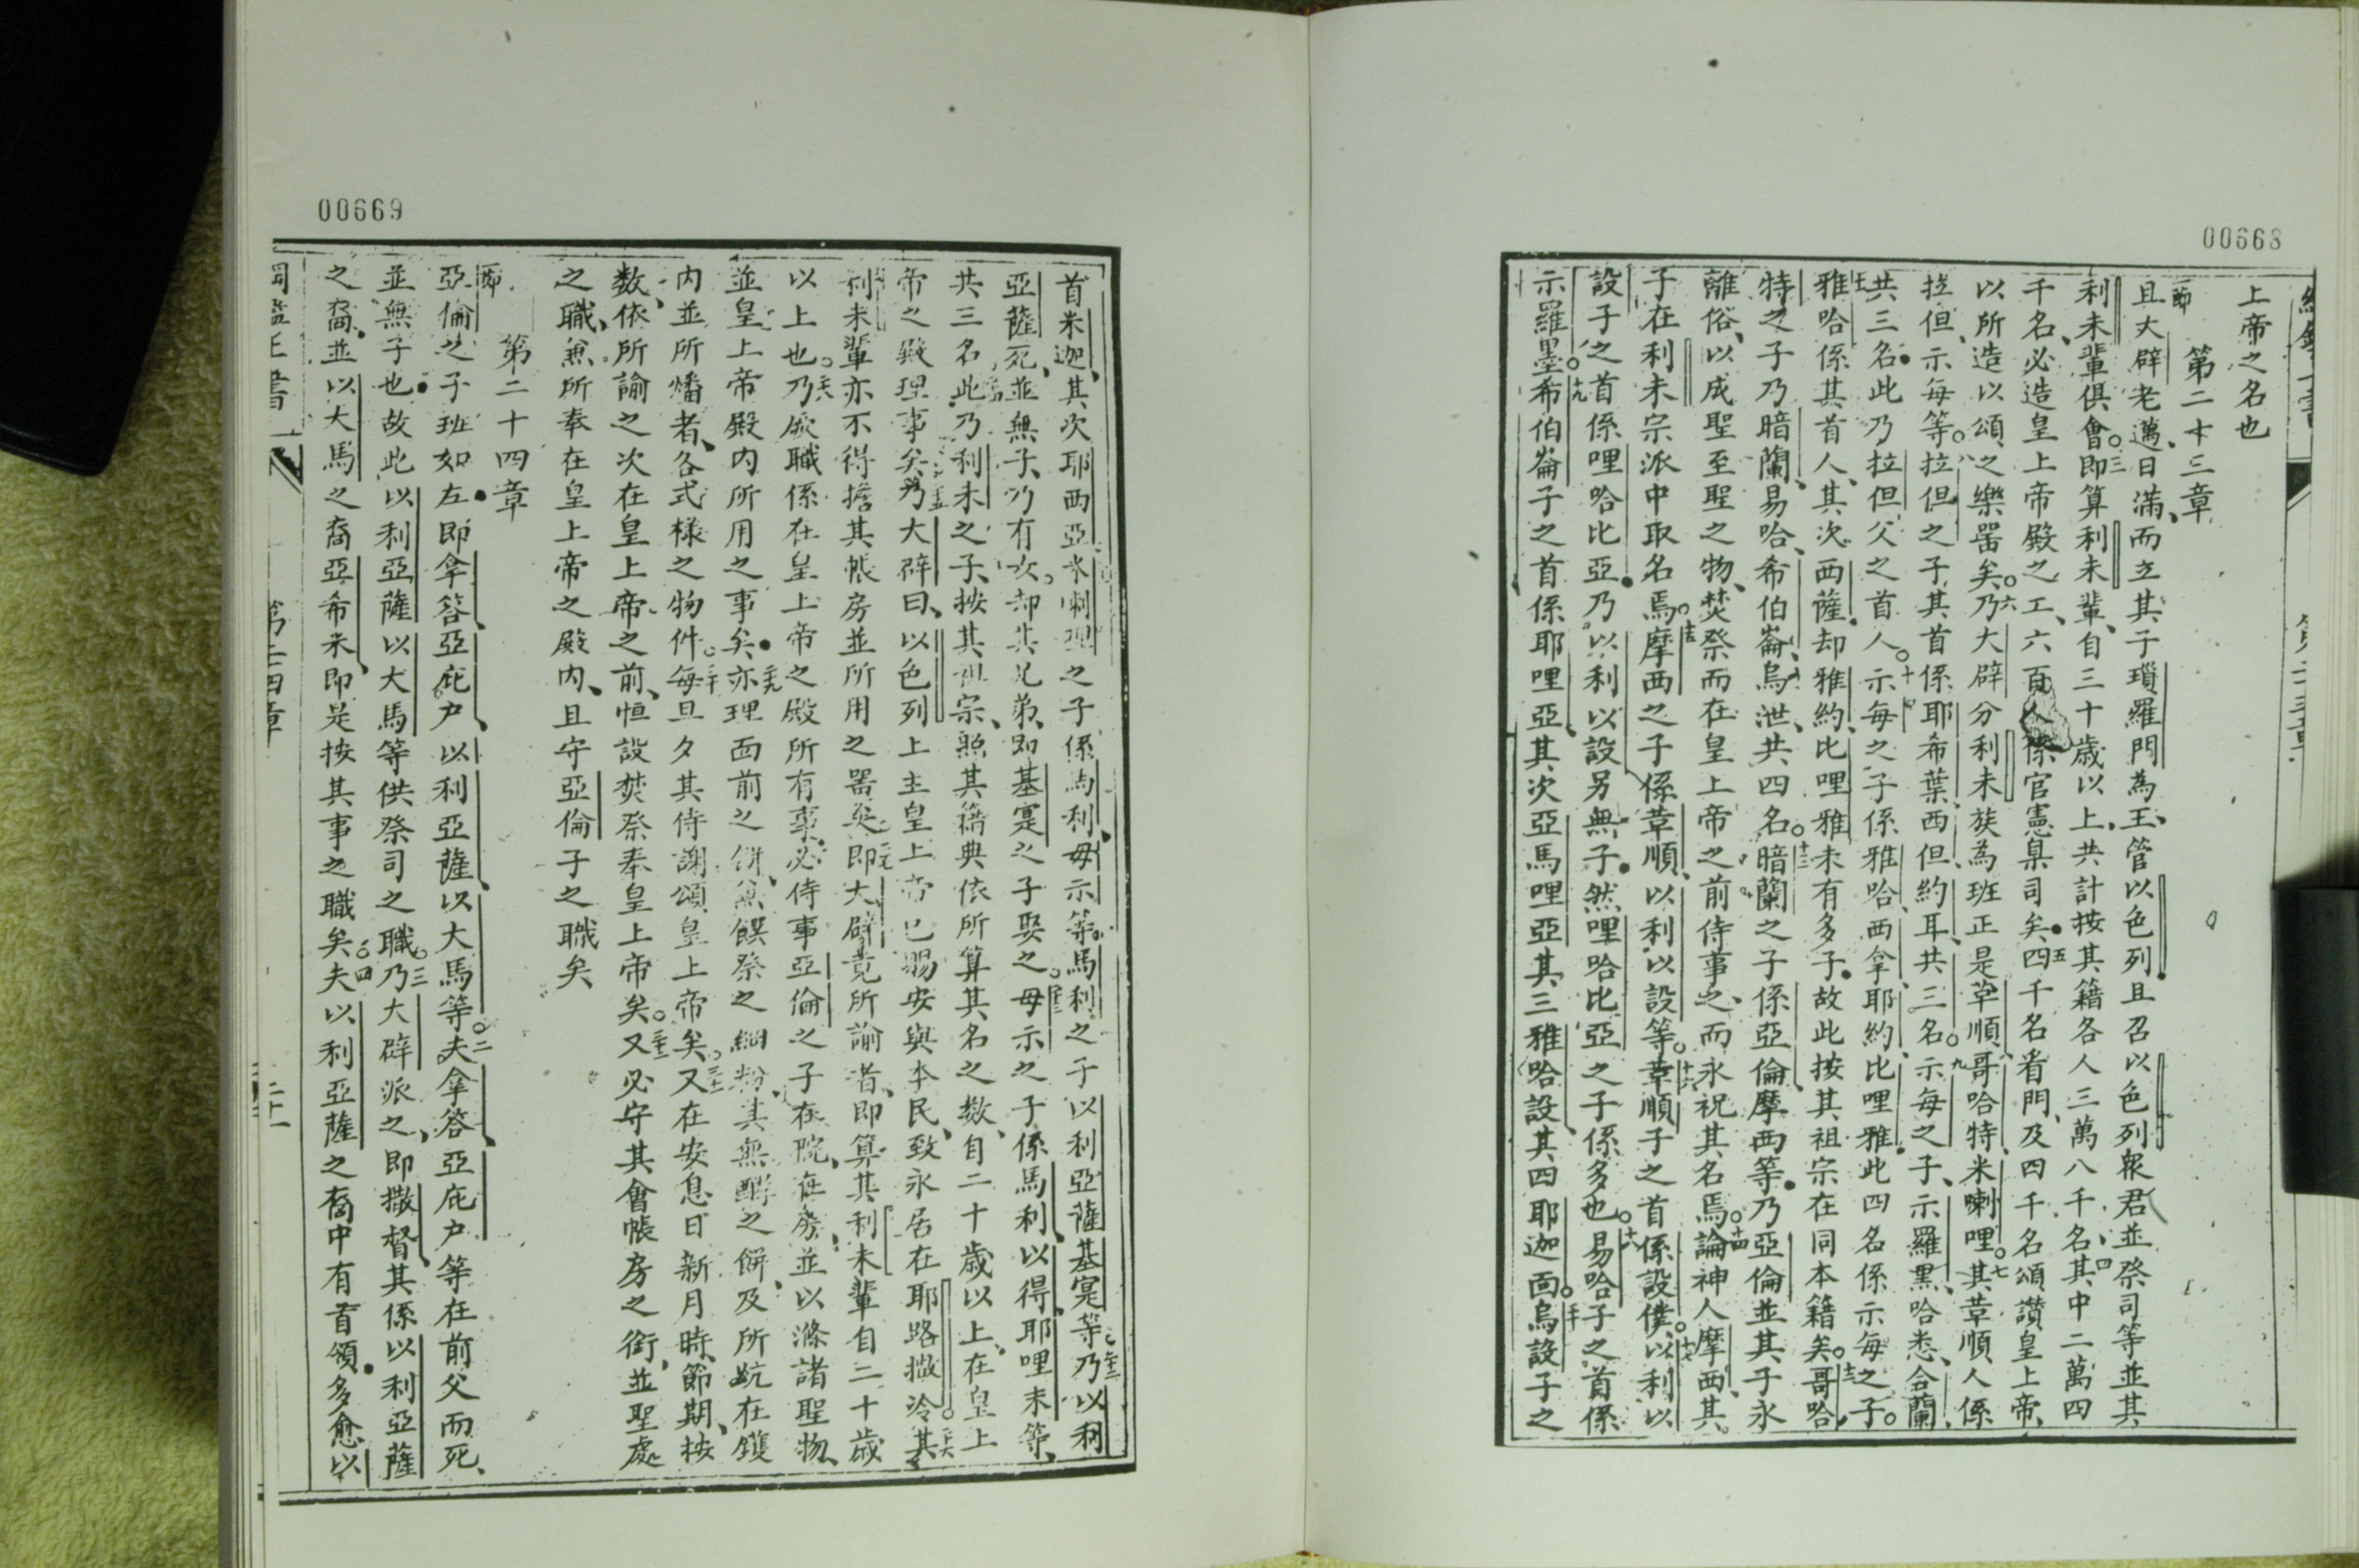 00668
上帝之名也
第二十三章
一節
且大辟老邁、日滿、而立其子瑣羅門為王、管以色列。且召以色列衆君並祭司等並其
利未輩俱會。三即算利未輩、自三十歲以上、共計按其籍各人三萬八千名、四其中二萬四
千名、必造皇上帝殿之工、六百人係官憲臬司矣。五四千名看門、及四千名頌讚皇上帝、
以所造以頌之樂噐矣。六乃大辟分利未族為班、正是革順、哥哈特、米喇哩。七其革順人係
拉但、示每等。八拉但之子、其首係耶希葉、西但、約耳、共三名。九示每之子、示羅黑、哈悉、合蘭、
共三名。此乃拉但父之首人。十示每之子係雅哈、西拿、耶約、比哩雅。此四名係示每之子。
十一雅哈係其首人、其次西薩。却雅約、比哩雅未有多子。故此按其祖宗在同本籍矣。十二哥哈
特之子乃暗蘭、易哈、希伯崙、烏泄、共四名。十三暗蘭之子係亞倫、摩西等。乃亞倫並其子永
離俗、以成聖至聖之物、焚祭而在皇上帝之前侍事之、而永祝其名焉。十四論神人摩西、其
子在利未宗派中取名焉。十五摩西之子係革順、以利以設等。十六革順子之首係設僕。十七以利以
設子之首係哩哈比亞。乃以利以設另無子。然哩哈比亞之子係多也。十八易哈子之首係
示羅墨。十九希伯崙子之首係耶哩亞、其次亞馬哩亞、其三雅哈設、其四耶迦面。二十烏設子之
00669
首米迦、其次耶西亞。米喇哩之子係馬利、母示等。馬利之子以利亞薩、基寔等。乃以利
亞薩死、並無子、乃有女。却其兄弟、即基寔之子娶之。母示之子係馬利、以得、耶哩末等、
共三名。此乃利未之子、按其祖宗、照其籍典依所算其名之数、自二十歲以上、在皇上
帝之殿理事矣。乃大辟曰、以色列上主皇上帝已賜安與本民、致永居在耶路撒冷。其
利未輩亦不得擔其帳房並所用之噐矣。即大辟竟所諭者、即算其利未輩自二十歲
以上也。乃厥職係在皇上帝之殿所有事、必侍事亞倫之子在院、在房、並以滌諸聖物、
並皇上帝殿内所用之事矣。亦理面前之餅、兼饌祭之細粉、其無酵之餅、及所䴵在鑊
内並所燔者、各式樣之物件。每旦夕其侍謝頌皇上帝矣。又在安息日新月時、節期、按
数、依所諭之次在皇上帝之前、恒設焚祭奉皇上帝矣。又必守其會帳房之衛、並聖處
之職、兼所奉在皇上帝之殿内、且守亞倫子之職矣
第二十四章
一節
亞倫之子班如左。即拿答、亞庇户、以利亞薩、以大馬等。二夫拿答、亞庇户等在前父而死、
並無子也。故此以利亞薩以大馬等供祭司之職。三乃大辟派之、即撒督、其係以利亞薩
之裔、並以大馬之裔亞希米、即是按其事之職矣。四夫以利亞薩之裔中有首領。多愈以
第二十四章